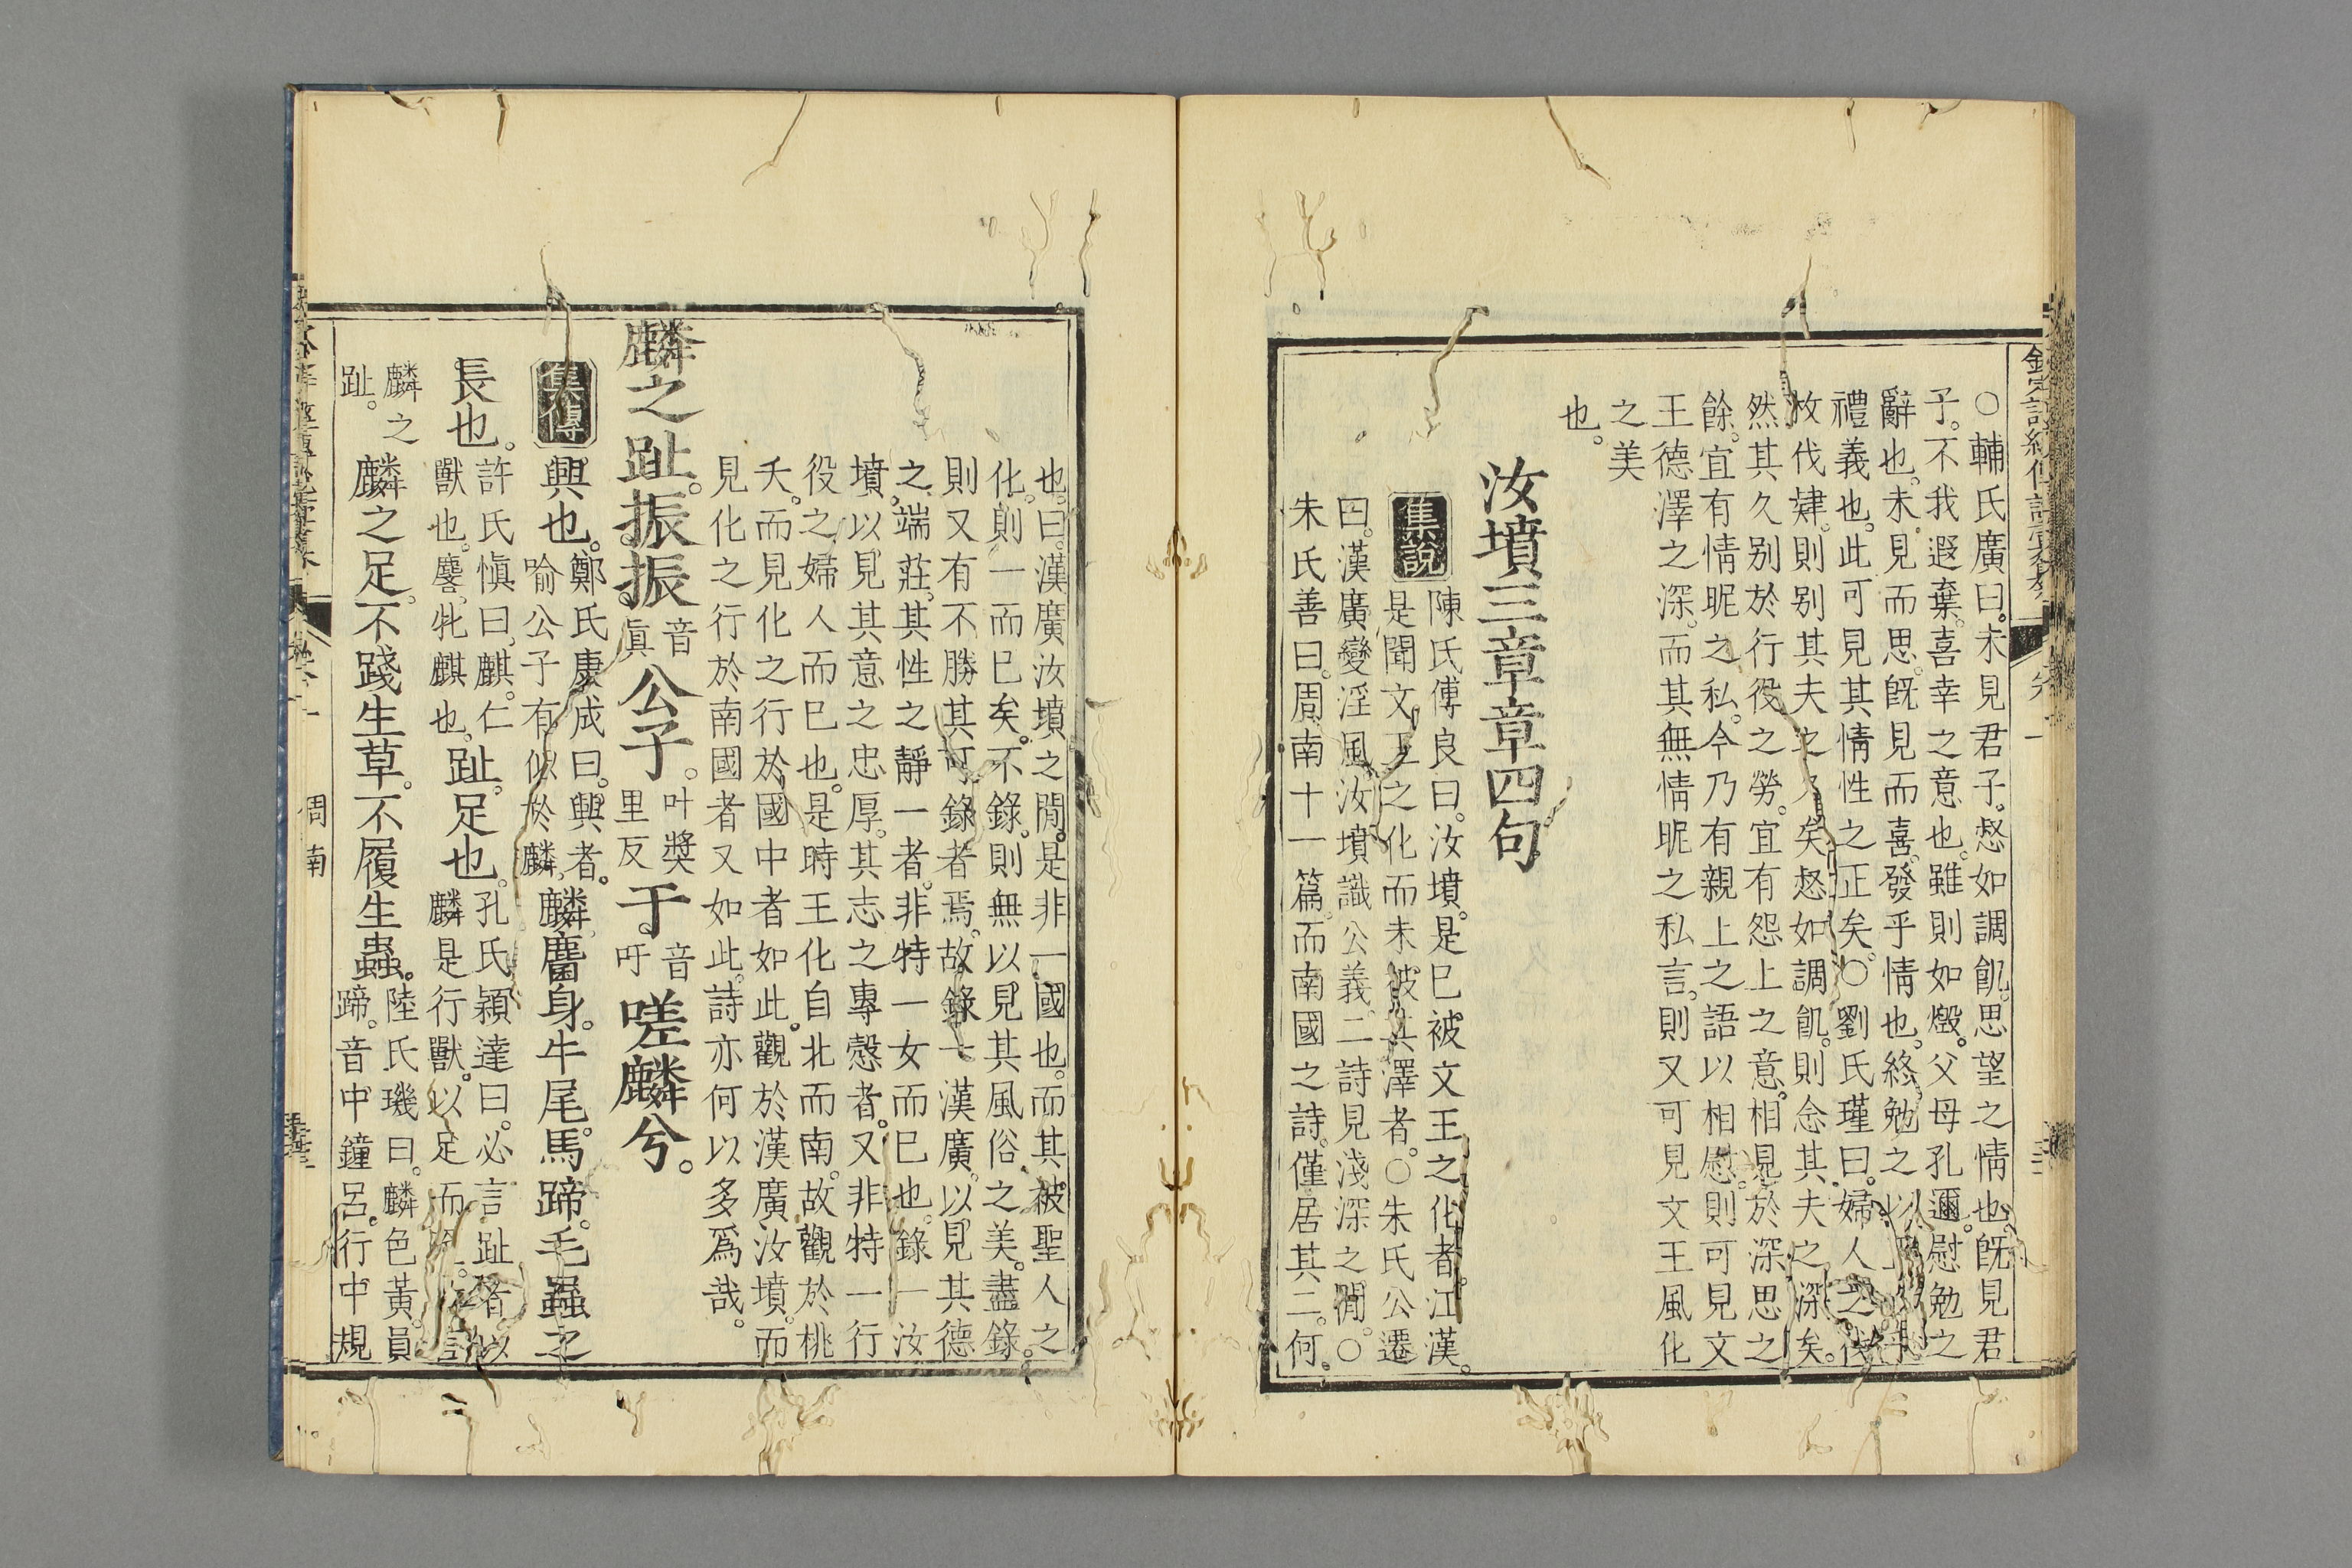 ○輔氏廣曰。未見君子。惄如調飢。思望之情也。旣見君
子。不我遐棄。喜幸之意也。雖則如燬。父母孔邇。慰勉之
辭也。未見而思。旣見而喜。發乎情也。終勉之以
禮義也。此可見其情性之正矣。○劉氏瑾曰。婦人之
枚伐肄。則別其夫之久矣。惄如調飢。則念其夫之深矣。
然其久別於行役之勞。宜有怨上之意。相見於深思之
餘。宜有情昵之私。今乃有親上之語以相慰。則可見文
王德澤之深。而其無情昵之私言。則又可見文王風化
之美
也。
汝墳三章章四句
集說
陳氏傅良曰。汝墳。是已被文王之化者。江漢。
是聞文王之化而未被其澤者。○朱氏公遷
曰。漢廣變淫風。汝墳識公義。二詩見淺深之閒。○
朱氏善曰。周南十一篇。而南國之詩。僅居其二。何
也。曰。漢廣汝墳之閒。是非一國也。而其被聖人之
化。則一而已矣。不錄。則無以見其風俗之美。盡錄。
則又有不勝其可錄者焉。故錄一漢廣。以見其德
之端莊。其性之靜一者。非特一女而已也。錄一汝
墳。以見其意之忠厚。其志之專慤者。又非特一行
役之婦人而已也。是時王化自北而南。故觀於桃
夭。而見化之行於國中者如此。觀於漢廣汝墳。而
見化之行於南國者又如此。詩亦何以多爲哉。
麟之趾。振振音眞公子。叶獎里反于音吁嗟麟兮。
集傳
興也。鄭氏康成曰。興者。喻公子有似於麟。麟麕身。牛尾。馬蹄。毛蟲之
長也。許氏愼曰。麒。仁獸也。麐。牝麒也。趾。足也。孔氏穎達曰。必言趾者。以麟是行獸。以足而
麟之趾。麟之足。不踐生草。不履生蟲。陸氏璣曰。麟色黃。員蹄。音中鐘呂。行中規
周南